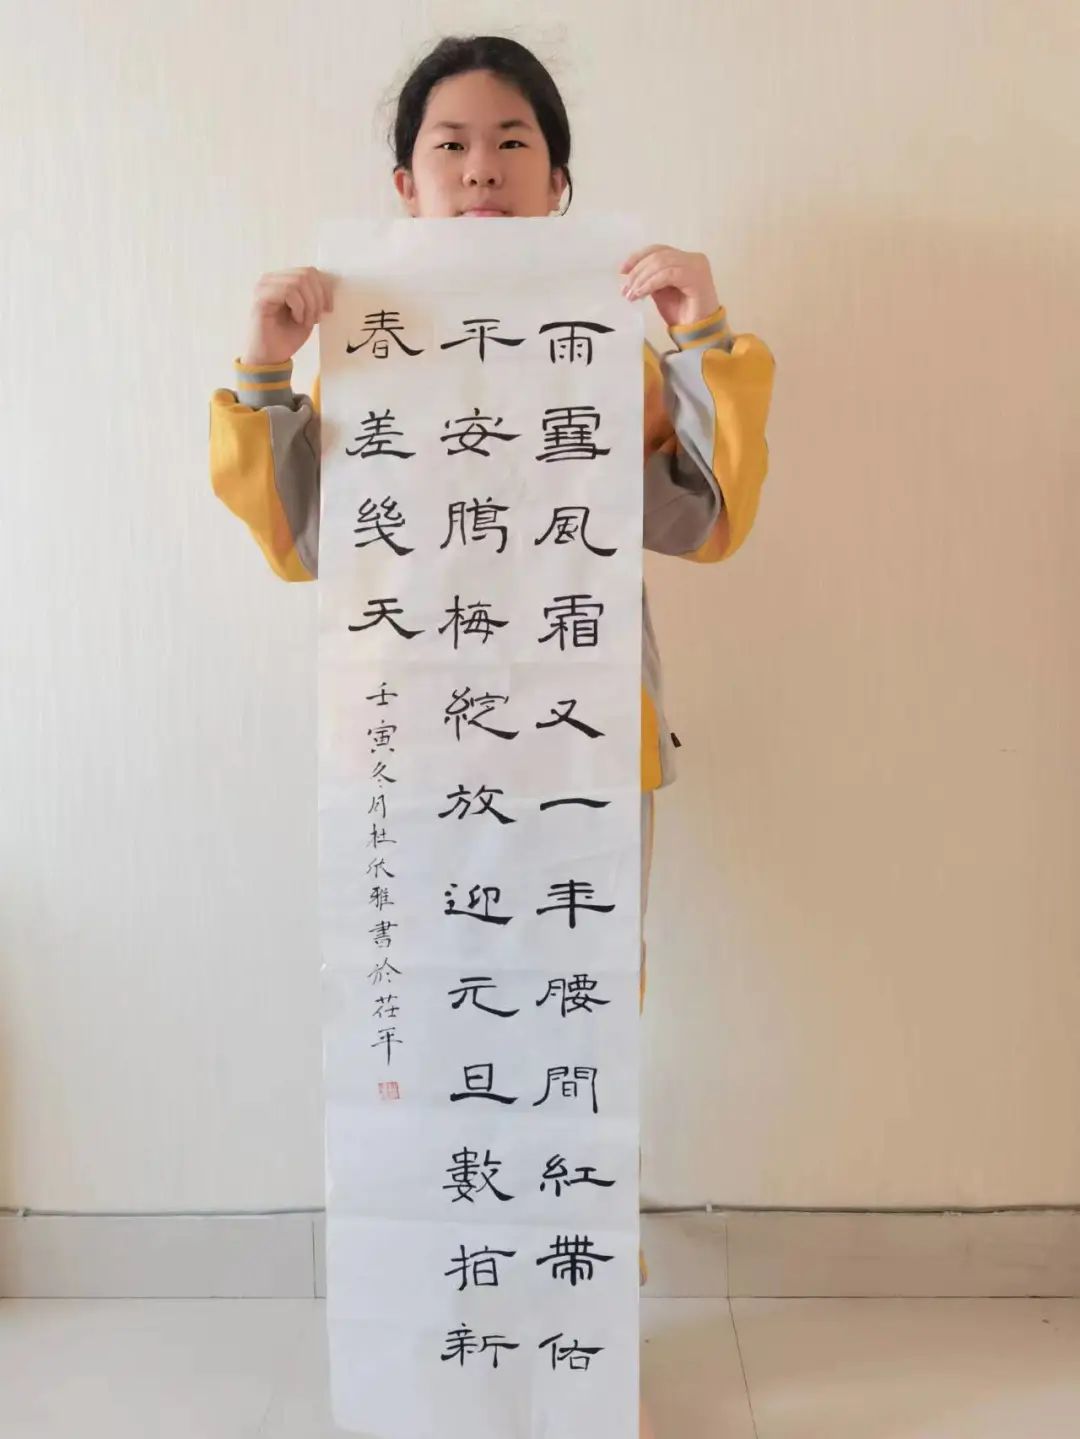 雨雪風霜又一年腰間紅帶佑
平安鵰梅綻放迎元旦數指新
春差幾天
壬寅冬月杜依雅書於茌平